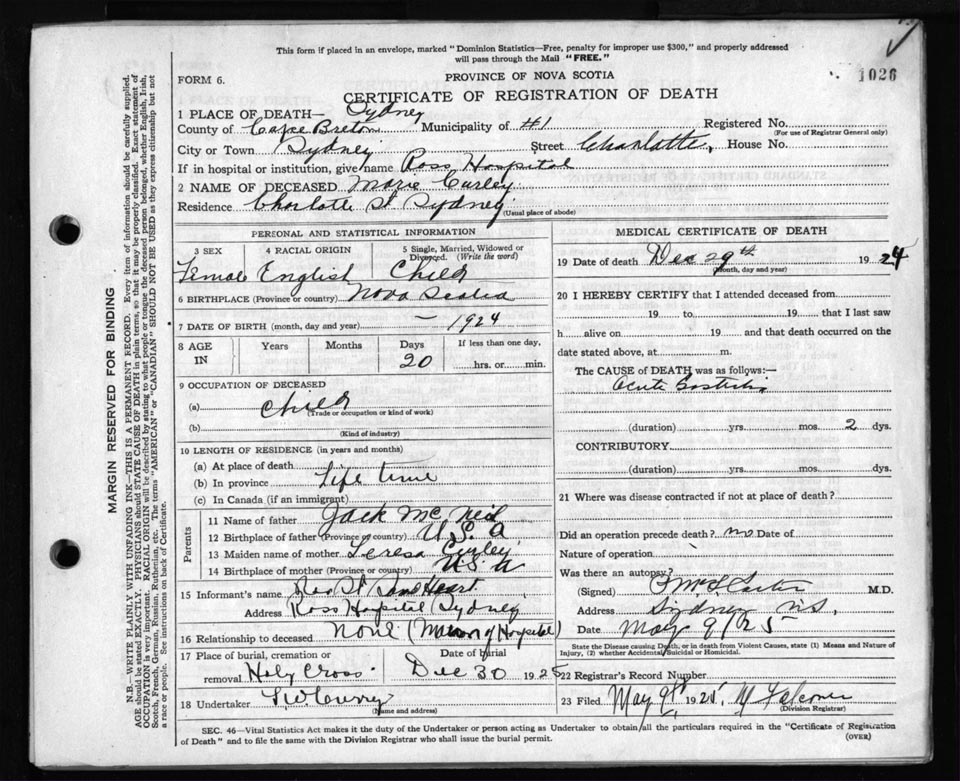 This form if placed in an envelope, marked "Dominion Statistics—Free, penalty for improper use $300," and properly addressed
will pass through the Mail "FREE."
FORM 6.
PROVINCE OF NOVA SCOTIA
1026
CERTIFICATE OF REGISTRATION OF DEATH
1 PLACE OF DEATH— Sydney
County of Cape Breton Municipality of #1 Registered No.
(For use of Registrar General only)
City or Town Sydney Street Charlotte, House No.
If in hospital or institution, give name Ross Hospital
2 NAME OF DECEASED Marie Curley
Residence Charlotte St Sydney
(Usual place of abode)
PERSONAL AND STATISTICAL INFORMATION
3 SEX 4 RACIAL ORIGIN 5 Single, Married, Widowed or Divorced. (Write the word)
Female English Child
6 BIRTHPLACE (Province or country) Nova Scotia
7 DATE OF BIRTH (month, day and year) — 1924
8 AGE IN Years Months Days If less than one day,
20 hrs. or min.
9 OCCUPATION OF DECEASED
(a) Child
(Trade or occupation or kind of work)
(b)
(Kind of industry)
10 LENGTH OF RESIDENCE (in years and months)
(a) At place of death
(b) In province Life time
(c) In Canada (if an immigrant)
Parents
11 Name of father Jack Mc Neil
12 Birthplace of father (Province or country) U.S.A.
13 Maiden name of mother Teresa Curley
14 Birthplace of mother (Province or country) U.S.A
15 Informant's name Heart
Address Ross Hospital Sydney
16 Relationship to deceased None (Matron of Hospital)
17 Place of burial, cremation or Date of burial
removal Holy Cross Dec 30 1925
18 Undertaker
(Name and address)
MEDICAL CERTIFICATE OF DEATH
19 Date of death Dec 29th 1924
(Month, day and year)
20 I HEREBY CERTIFY that I attended deceased from
19 to 19 that I last saw
h alive on 19 and that death occurred on
date stated above, at m.
The CAUSE of DEATH was as follows:—
Acute
(duration) yrs. mos. 2 dys.
CONTRIBUTORY
(duration) yrs. mos. dys.
21 Where was disease contracted if not at place of death?
Did an operation precede death? no Date of
Nature of operation
Was there an autopsy?
(Signed) M.D.
Address Sydney N.S.
Date May 9/25
State the Disease causing Death, or in death from Violent Causes, state (1) Means and Nature of
Injury, (2) whether Accidental, Suicidal or Homicidal.
22 Registrar's Record Number
23 Filed May 9th 1925. M Falconer
(Division Registrar)
SEC. 46—Vital Statistics Act makes it the duty of the Undertaker or person acting as Undertaker to obtain all the particulars required in the "Certificate of Registration
of Death" and to file the same with the Division Registrar who shall issue the burial permit.
(OVER)
MARGIN RESERVED FOR BINDING
N.B.—WRITE PLAINLY WITH UNFADING INK—THIS IS A PERMANENT RECORD. Every item of information should be carefully supplied.
AGE should be stated EXACTLY. PHYSICIANS should STATE CAUSE OF DEATH in plain terms, so that it may be properly classified. Exact statement of
OCCUPATION is very important. RACIAL ORIGIN will be described by stating to what people or tongue the deceased person belonged, whether English, Irish,
Scotch, French, German, Russian, Ruthenian, etc. The terms "AMERICAN" or "CANADIAN" SHOULD NOT BE USED as they express citizenship but not
a race or people. See instructions on back of Certificate.